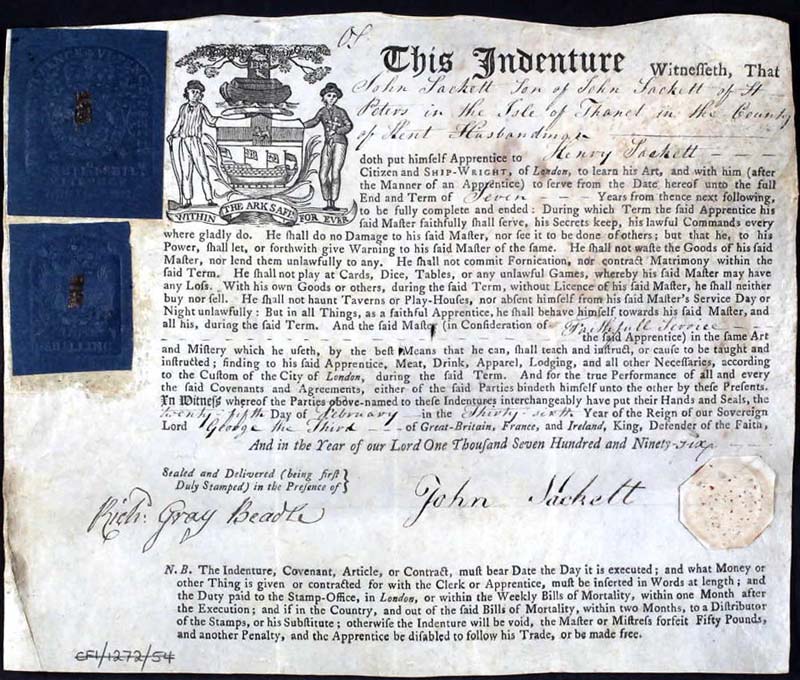 Of
This Indenture Witnesseth, That
John Sackett Son of John Sackett of St
Peters in the Isle of Thanet in the County
of Kent Husbandman
doth put himself Apprentice to Henry Sackett
Citizen and SHIP-WRIGHT, of London, to learn his Art, and with him (after
the Manner of an Apprentice) to serve from the Date hereof unto the full
End and Term of Seven Years from thence next following,
to be fully complete and ended: During which Term the said Apprentice his
said Maſter faithfully ſhall ſerve, his Secrets keep, his lawful Commands every
where gladly do. He ſhall do no Damage to his ſaid Maſter, nor ſee it to be done of others; but that he, to his
Power, ſhall let, or forthwith give Warning to his ſaid Maſter of the ſame. He ſhall not waſte the Goods of his ſaid
Maſter, nor lend them unlawfully to any. He ſhall not commit Fornication, nor contract Matrimony within the
ſaid Term. He ſhall not play at Cards, Dice, Tables, or any unlawful Games, whereby his ſaid Maſter may have
any Loſs. With his own Goods or others, during the ſaid Term, without Licence of his ſaid Maſter, he ſhall neither
buy nor ſell. He ſhall not haunt Taverns or Play-Houſes, nor abſent himſelf from his ſaid Maſter's Service Day or
Night unlawfully: But in all Things, as a faithful Apprentice, he ſhall behave himſelf towards his ſaid Maſter, and
all his, during the ſaid Term. And the ſaid Maſter (in Conſideration of Faithfull Service
the ſaid Apprentice) in the ſame Art
and Miſtery which he uſeth, by the beſt Means that he can, ſhall teach and inſtruct, or cauſe to be taught and
inſtructed; finding to his ſaid Apprentice, Meat, Drink, Apparel, Lodging, and all other Neceſſaries, according
to the Cuſtom of the City of London, during the ſaid Term. And for the true Performance of all and every
the ſaid Covenants and Agreements, either of the ſaid Parties bindeth himſelf unto the other by theſe Preſents.
In Witneſs whereof the Parties above-named to theſe Indentures interchangeably have put their Hands and Seals, the
twenty fifth Day of February in the Thirty sixth Year of the Reign of our Sovereign
Lord George the Third of Great-Britain, France, and Ireland, King, Defender of the Faith,
And in the Year of our Lord One Thouſand Seven Hundred and Ninety-six
WITHIN THE ARK SAFE FOR EVER
Sealed and Delivered (being firſt
Duly Stamped) in the Preſence of}
Richd. Gray Beadle
John Sackett
N. B. The Indenture, Covenant, Article, or Contract, muſt bear Date the Day it is executed; and what Money or
other Thing is given or contracted for with the Clerk or Apprentice, muſt be inſerted in Words at length; and
the Duty paid to the Stamp-Office, in London, or within the Weekly Bills of Mortality, within one Month after
the Execution; and if in the Country, and out of the ſaid Bills of Mortality, within two Months, to a Diſtributor
of the Stamps, or his Subſtitute; otherwiſe the Indenture will be void, the Maſter or Miſtreſs forfeit Fifty Pounds,
and another Penalty, and the Apprentice be diſabled to follow his Trade, or be made free.
CF1/1272/54